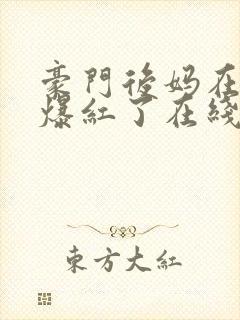 豪門後妈在
爆紅了在綫
東方大紅